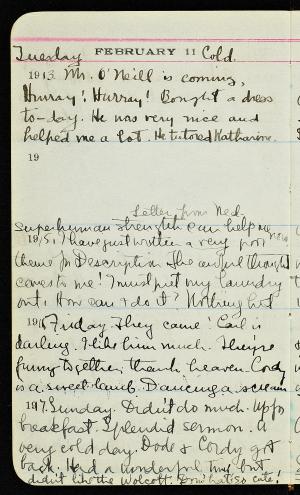 Tuesday FEBRUARY 11 Cold.
1913 Mr. O'Neill is coming,
Hurray! Hurray! Bought a dress
to-day. He was very nice and
helped me a lot. He tutored Katharine.
19
Letter from Ned.
Superhuman strength can help me now
1915, I have just written a very poor
theme for Description. The awful thought
comes to me! I must put my laundry
out. How can I do it? Nothing but
1916 Friday. They came! Earl is
darling. I like him much. They're
funny together, thank heaven. Cordy
is a sweet lamb. Dancing a scream
1917. Sunday. Didn't do much. Up for
breakfast. Splendid sermon. A
very cold day. Dode & Cordy got
back. Had a wonderful time but
didn't like the Wolcott. cute.